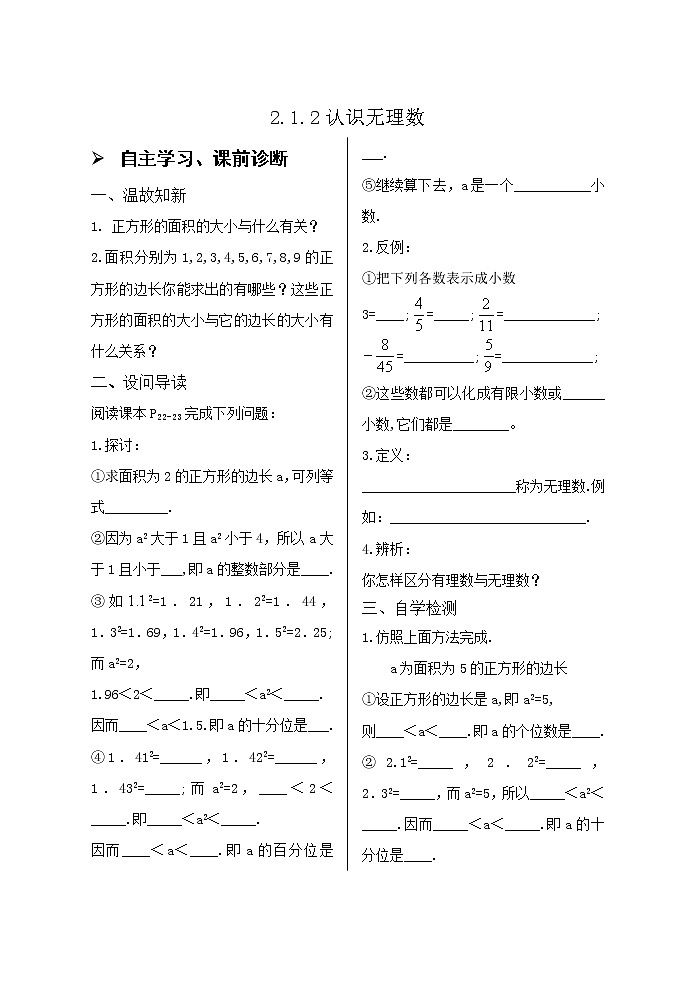 2.1.2认识无理数
➢ 自主学习、课前诊断
一、温故知新
1. 正方形的面积的大小与什么有关?
2.面积分别为1,2,3,4,5,6,7,8,9的正
方形的边长你能求出的有哪些?这些正
方形的面积的大小与它的边长的大小有
什么关系?
二、设问导读
阅读课本P₂₂-₂₃完成下列问题:
1.探讨:
①求面积为2的正方形的边长a,可列等
式_________.
②因为a²大于1且a²小于4,所以a大
于1且小于___,即a的整数部分是____.
③如1.1²=1.21,1.2²=1.44,
1.3²=1.69,1.4²=1.96,1.5²=2.25;
而a²=2,
1.96<2<_____.即_____<a²<_____.
因而____<a<1.5.即a的十分位是___.
④1.41²=______,1.42²=______,
1.43²=_____;而a²=2,____<2<
_____.即_____<a²<_____.
因而____<a<____.即a的百分位是
___.
⑤继续算下去,a是一个___________小
数.
2.反例:
①把下列各数表示成小数
3=____;4/5=_____;2/11=_____________;
-8/45=__________;5/9=_____________;
②这些数都可以化成有限小数或______
小数,它们都是________。
3.定义:
______________________称为无理数.例
如:____________________________.
4.辨析:
你怎样区分有理数与无理数?
三、自学检测
1.仿照上面方法完成.
a为面积为5的正方形的边长
①设正方形的边长是a,即a²=5,
则____<a<____.即a的个位数是____.
②2.1²=_____,2.2²=_____,
2.3²=_____,而a²=5,所以_____<a²<
_____.因而_____<a<_____.即a的十
分位是____.